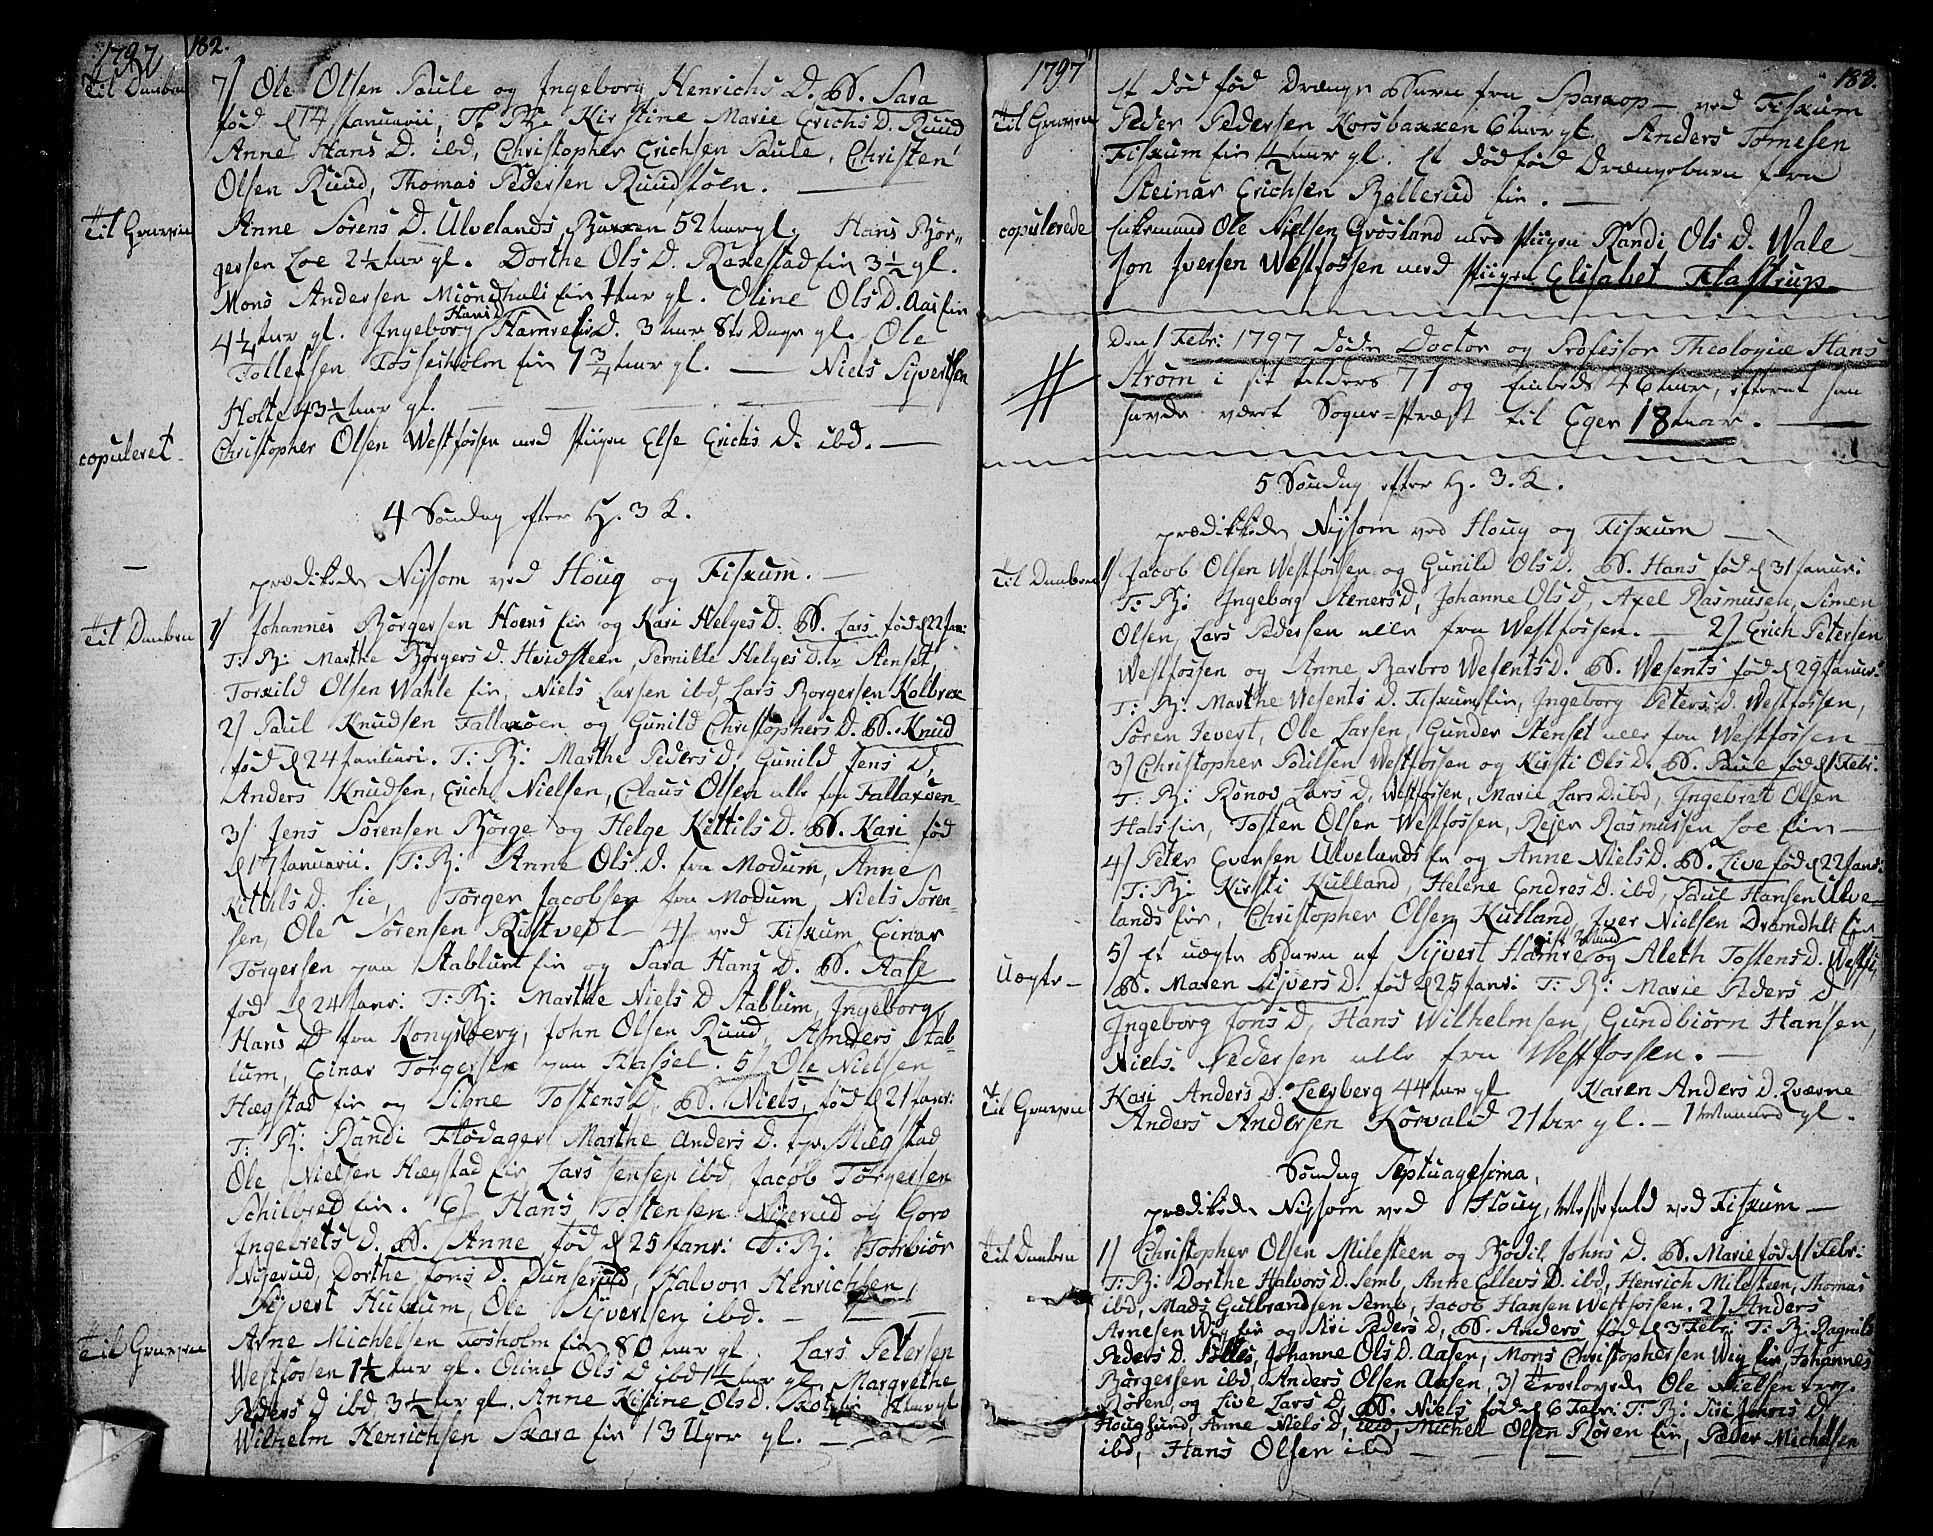 1797 182.
Til Daaben 7/ Ole Olsen Saule og Ingeborg Henrichs D. B. Sara
fød d 14 Januarii, T. B. Kirstine Marie Erichs D. Ruud
Anne Hans D. ibd, Christopher Erichsen Saule, Christen
Olsen Ruud, Thomas Pedersen Ruudstøen. —
Til Graven Anne Sørens D. Ulvelands Baxxen 52 aar gl. Hans Bør-
gersen Loe 2 1/2 aar gl. Dorthe Ols D. Baxestad 3 1/2 gl.
Mons Andersen Miøndhali 1 aar gl. Oline Ols D. Aas
4 1/4 aar gl. Ingeborg Hans D. 3 aar 8te Dage gl. Ole
Tollefsen Fossesholm 1 3/4 aar gl. — Niels Syvertsen
Holte 43 1/2 aar gl.
copuleret Christopher Olsen Westfossen med Else Erichs D. ibd. —
4 Søndag efter H. 3 K.
prædikede Nysom ved Houg og Fisxum. —
Til Daaben 1/ Johannes Børgersen Hoens og Kari Helges D. B. Lars fød d 22 Jan:
T: B: Marthe Børgers D. Hvidsteen, Pernille Helges D. Stenset,
Torxild Olsen Wahle, Niels Larsen ibd, Lars Borgersen Kolbrex
2/ Paul Knudsen Fallaxøen og Gunild Christophers D. B. Knud
fød d 24 Januari. T: B: Marthe Peders D, Gunild Jens D,
Anders Knudsen, Erich Nielsen, Claus Olsen alle fra Fallaxøen-
3/ Jens Sørensen Borge og Helge Kittils D. B. Kari fød
d 17 Januarii. T: B: Anne Ols D. fra Modum, Anne
Kittils D. Lie, Torger Jacobsen fra Modum, Niels Søren-
sen, Ole Sørensen — 4/ ved Fisxum Einar
Torgersen paa Stablum og Sara Hans D. B. Aase
fød d 24 Janr: T: B: Marthe Niels D Stablum, Ingeborg
Hans D fra Kongsberg, John Olsen Ruud, Anders Stab-
lum, Einar Torgersen paa 5/ Ole Nielsen
Hægstad og Signe Tostens D, B. Niels, fød d 21 Janr:
T: B: Randi Flødager Marthe Anders D. Hægstad
Ole Nielsen Hægstad Lars Jensen ibd, Jacob Torgersen
Schilbred 6/ Hans Tostensen Nygerud og Goro
Ingebrets D. B. Anne fød d 25 Janr: T: B: Torbiør
Nygerud, Dorthe Jons D. Dunserud, Halvor Henrichsen
Syvert Huxum, Ole Syvertsen ibd. —
Til Graven Arne Michelsen Fosholm 80 aar gl. Lars Petersen
Westfossen 1 1/2 aar gl. Oline Ols D ibd 1 1/2 aar gl. Margrethe
Peders D ibd 3 1/2 aar gl. Anne Kistine Ols D. aar gl
Wilhelm Henrichsen Skara 13 Uger gl. —
1797 183.
Et død fød Drænge Barn fra Sparxop — ved Fisxum
Til Graven Peder Pedersen Korsbaxxen 6 aar gl. Anders Tomesen
Fisxum 1/2 aar gl. Et dødfød Drængebarn fra
Steinar Erichsen Bollerud —
copulerede Ole Nielsen Grøsland med Randi Ols D. Wale
Jon Iversen Westfossen med Elisabet Flastrup
Den 1 Febr: 1797 døde Doctor og Professor Theologiæ Hans
Strøm i sit alders 71 og Embeds 46 aar, efterat han
havde været Sogne-Præst til Eger 18 aar. —
5 Søndag efter H. 3. K.
prædikede Nysom ved Houg og Fisxum —
Til Daaben 1/ Jacob Olsen Westfossen og Gunild Ols D. B. Hans fød d 31 Janur:
T: B: Ingeborg Steners D, Johanne Ols D, Axel Rasmusen, Simen
Olsen, Lars Pedersen alle fra Westfossen. — 2/ Erich Petersen
Westfossen og Anne Barbro Wesents D. B. Wesents fød d 29 Janur:
T: B: Marthe Wesents D. Fisxum, Ingeborg Peters D. Westfossen,
Søren Severt, Ole Larsen, Gunder Stenset alle fra Westfossen —
3/ Christopher Poulsen Westfossen og Kirsti Ols D. B. fød d 1 Febr:
T: B: Rønov Lars D, Westfossen, Marie Lars D. ibd, Ingebret Olsen
Hals, Tosten Olsen Westfossen, Rejer Rasmussen Loe —
4/ Peter Evensen Ulvelands og Anne Niels D. B. Live fød d 22 Janr:
T: B: Kirsti Kulland, Helene Endres D. ibd, Paul Hansen Ulve-
lands, Christopher Olsen Kutland, Iver Nielsen
Uægte — 5/ Et uægte Barn af Syvert Hamre og Aleth Tostens D. Westf:
B. Maren Syvers D. fød d 25 Janr: T: B: Marie Peders D
Ingeborg Jons D, Hans Wilhelmsen, Gundbiørn Hansen,
Niels Pedersen alle fra Westfossen. —
Til Graven Kari Anders D. Leerberg 44 aar gl Karen Anders D. Qværne
Anders Andersen Korvald 21 aar gl. — 1 Maaned gl.
Søndag Septuagesima,
prædikede Nysom ved Houg, Messefald ved Fisxum —
Til Daaben 1/ Christopher Olsen Milesteen og Bodil Johns D. B. Marie fød d 1 Febr:
T: B: Dorthe Halvors D. Semb, Anne Ellevs D. ibd, Henrich Milesteen, Thomas
ibd, Mads Gulbrandsen Semb, Jacob Hansen Westfossen. 2/ Anders
Arnesen Wiig og Siri Peders D, B. Anders fød d 3 Febr: T: B: Ragnild
Peders D. Johanne Ols D. Aasen, Mons Christophersen Wiig, Johannes
Børgersen ibd, Anders Olsen Aasen, 3/ Trorlovede Ole Nielsen
Røren, og Live Lars D. B. Niels fød d 6 Febr: T: B: Siri Johns D
Hougsund, Anne Niels D. ibid, Michel Olsen Røren, Peder Michelsen
ibd, Hans Olsen ibd —